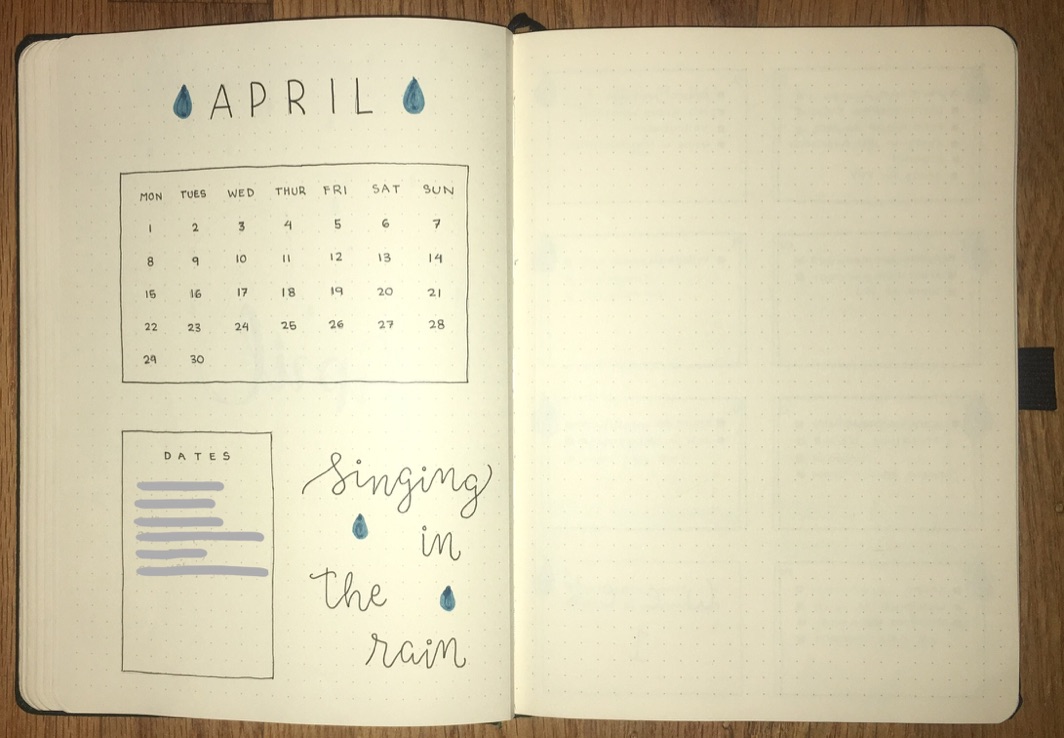 APRIL
MON TUES WED THUR FRI SAT SUN
1 2 3 4 5 6 7
8 9 10 11 12 13 14
15 16 17 18 19 20 21
22 23 24 25 26 27 28
29 30
DATES
singing
in
the
rain